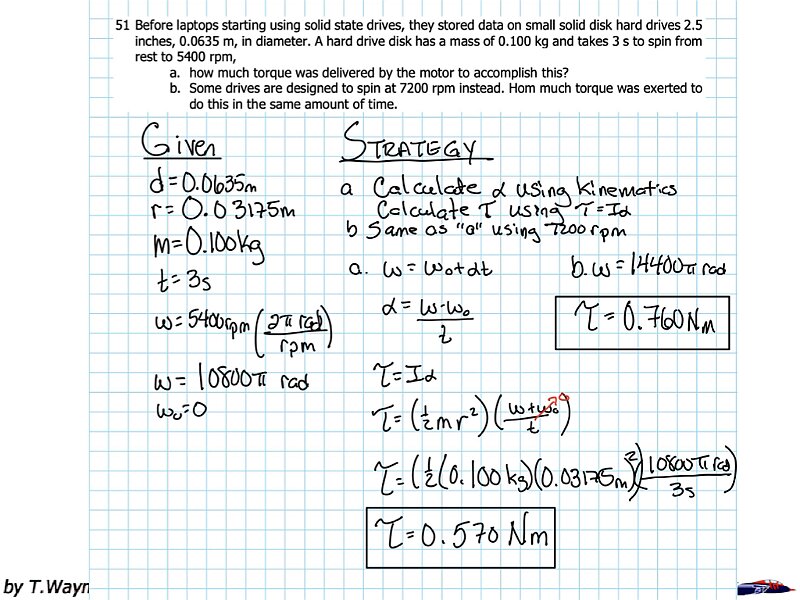 51 Before laptops starting using solid state drives, they stored data on small solid disk hard drives 2.5
inches, 0.0635 m, in diameter. A hard drive disk has a mass of 0.100 kg and takes 3 s to spin from
rest to 5400 rpm,
a. how much torque was delivered by the motor to accomplish this?
b. Some drives are designed to spin at 7200 rpm instead. Hom much torque was exerted to
do this in the same amount of time.
Given
d = 0.0635m
r = 0.03175m
m = 0.100kg
t = 3s
ω = 5400rpm (2π rad / rpm)
ω = 10800π rad
ω₀ = 0
STRATEGY
a Calculate α using kinematics
Calculate τ using τ = Iα
b Same as "a" using 7200 rpm
a. ω = ω₀ + αt
α = ω - ω₀ / t
τ = Iα
τ = (½mr²)(ω + ω₀ / t) 0
τ = (½(0.100kg)(0.03175m)²)(10800π rad / 3s)
τ = 0.570 Nm
b. ω = 14400π rad
τ = 0.760 Nm
by T.Wayn